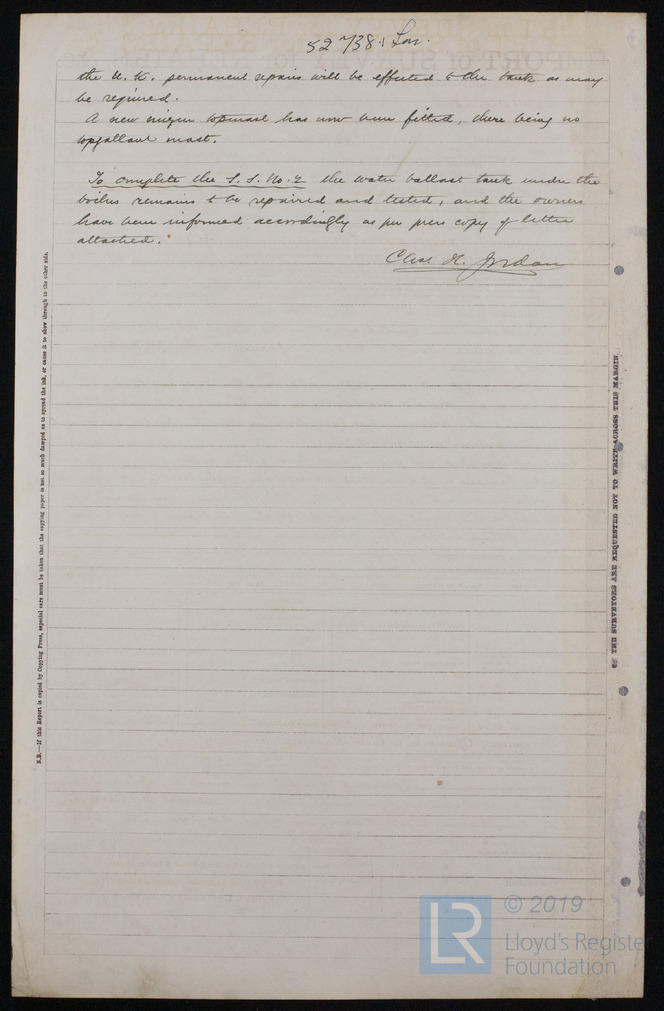 52738 Lon.
the U.K. permanent repairs will be effected to the tank as may
be required.
A new mizen topmast has now been fitted, there being no
topgallant mast.
To complete the S.S. No. 2 the water ballast tank under the
boilers remains to be repaired and tested, and the owners
have been informed accordingly as per press copy of letter
attached.
Chas. H. Jordan
N.B.—If this Report is copied by Copying Press, especial care must be taken that the copying paper is not so much damped as to spread the ink, or cause it to show through to the other side.
THE SURVEYORS ARE REQUESTED NOT TO WRITE ACROSS THIS MARGIN.
LR
© 2019
Lloyd's Register
Foundation